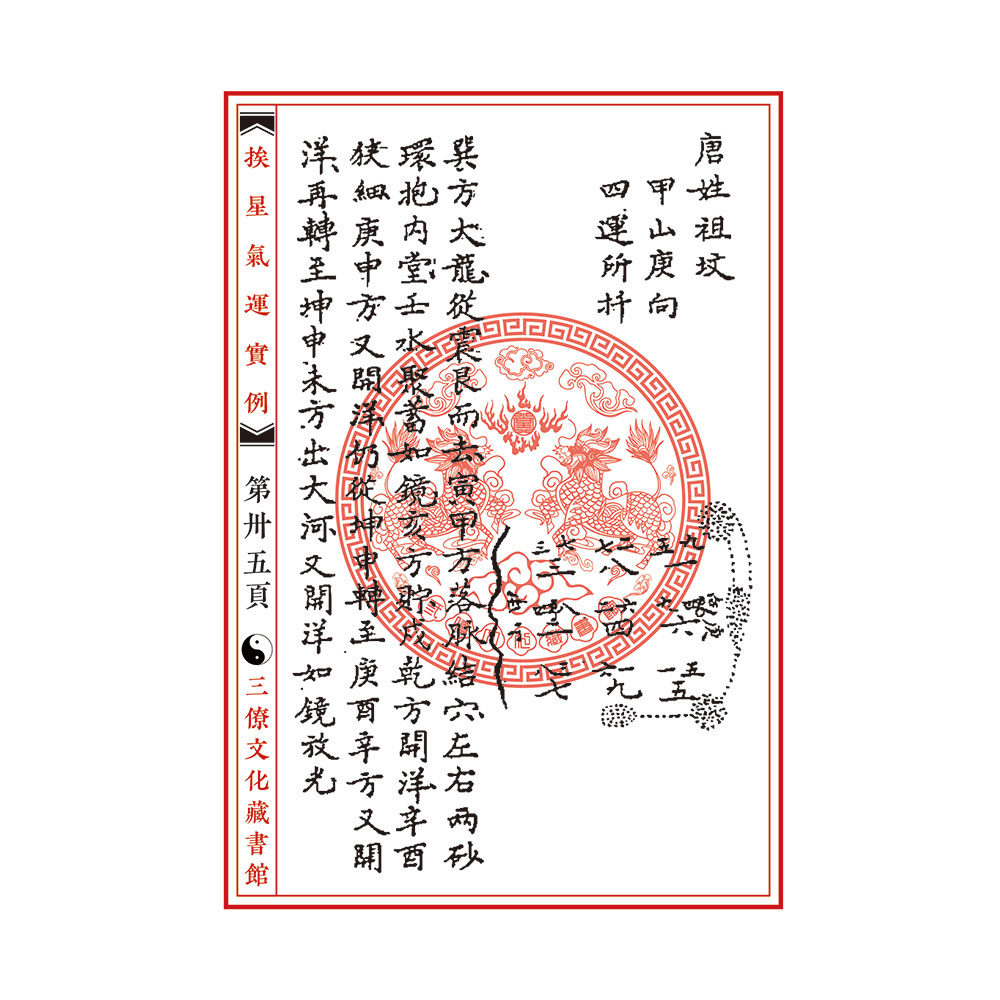 唐姓祖坟
甲山庚向
四運所扦
九 五 一
二 七 八
七 三 三
六
二 六 四
八 四 二
五 一 五
一 六 九
三 八 七
巽方大龍從震艮而去寅甲方落脉結穴左右兩砂
環抱内堂壬水聚蓄如鏡亥方貯戍乾方開洋辛酉
狭細庚申方又開洋仍從坤申轉至庚酉辛方又開
洋再轉至坤申未方出大河又開洋如鏡放光
挨星氣運實例
第卅五頁
三僚文化藏書館